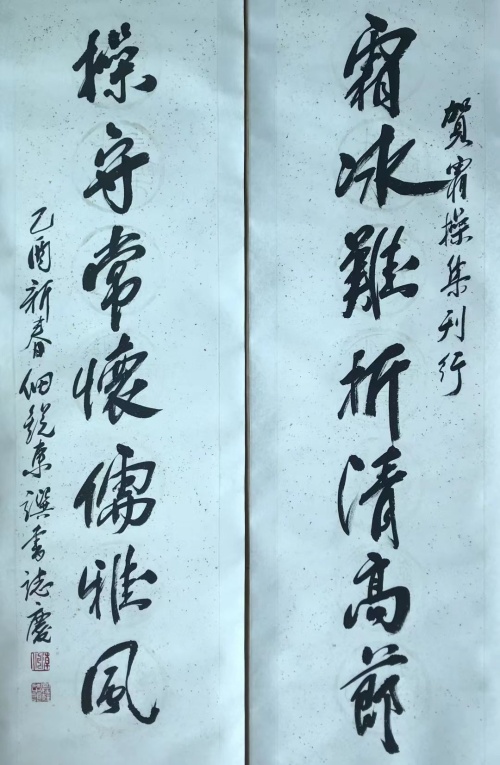 賀霜操集刊行
霜冰難折清高節
操守常懷儒雅風
乙酉新春佃銳東譔書誌慶